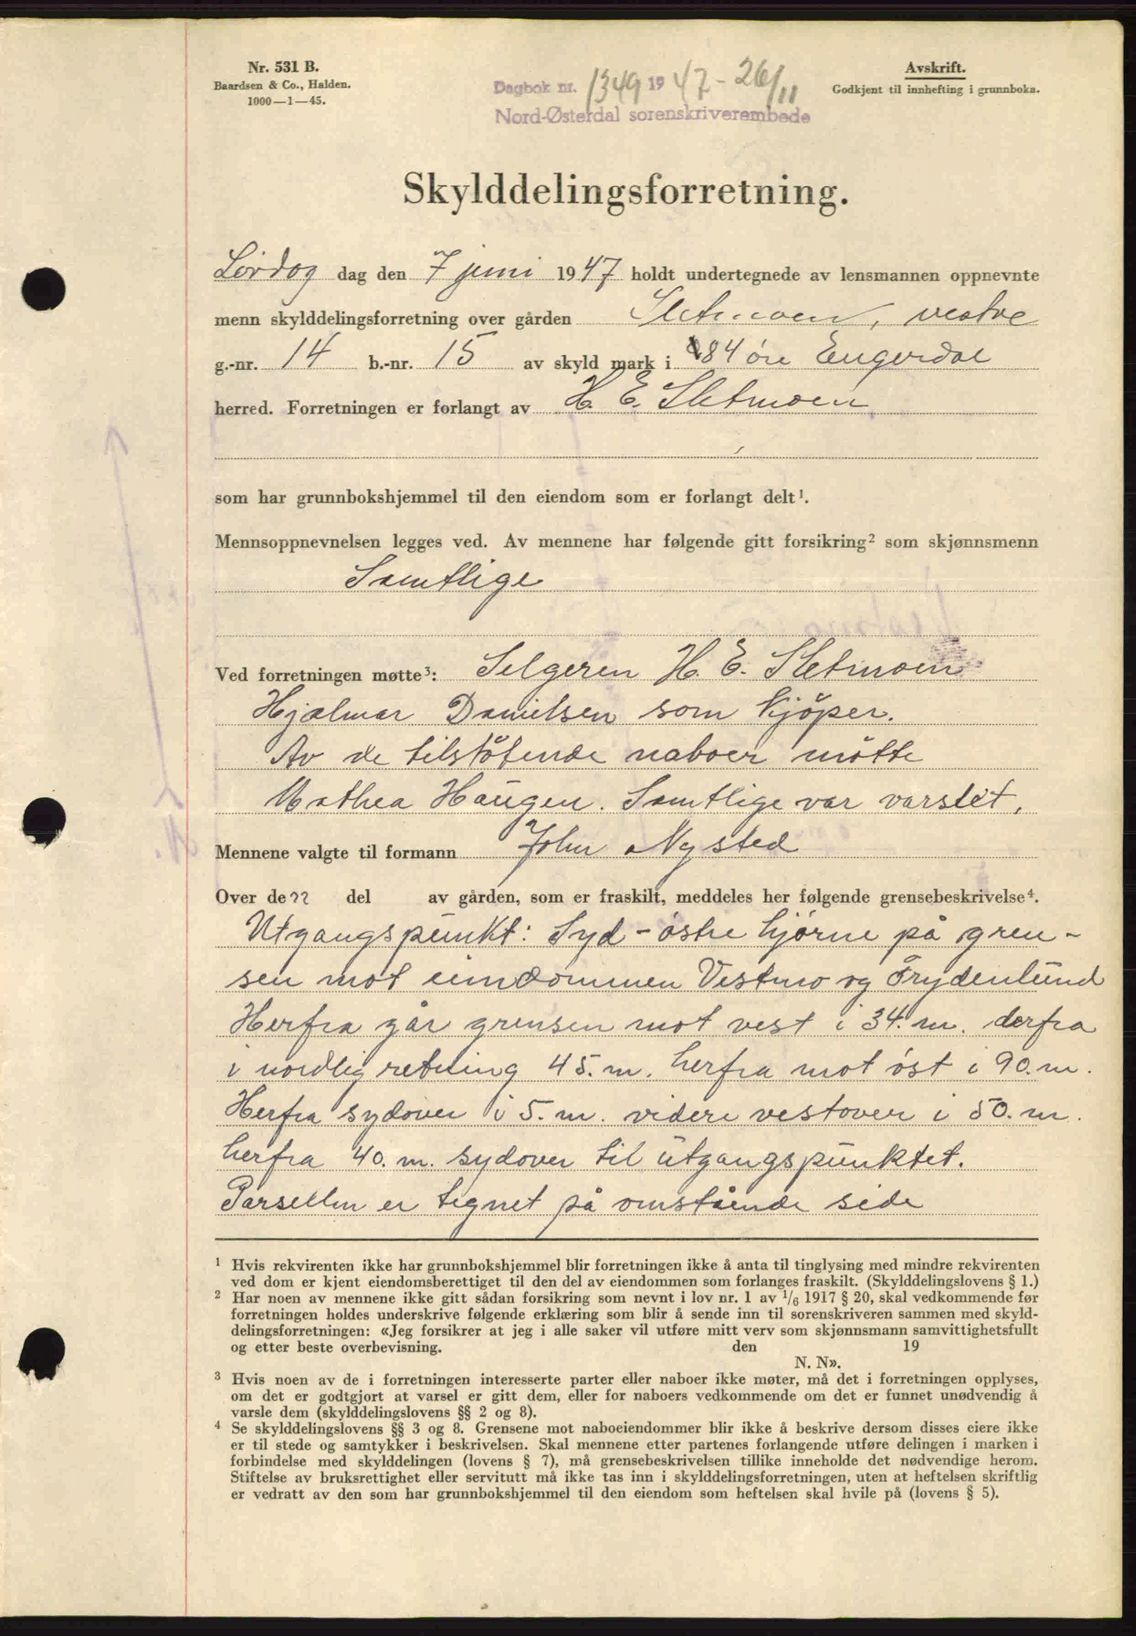 Nr. 531 B.
Baardsen & Co., Halden.
1000—1—45.
Dagbok nr. 1349 1947 - 26/11
Nord-Østerdal sorenskriverembede
Avskrift.
Godkjent til innhefting i grunnboka.
Skylddelingsforretning.
Lördag dag den 7 juni 1947 holdt undertegnede av lensmannen oppnevnte
menn skylddelingsforretning over gården Sletmoen, vestre
g.-nr. 14 b.-nr. 15 av skyld mark i 84 öre Engerdal
herred. Forretningen er forlangt av H. E. Sletmoen
som har grunnbokshjemmel til den eiendom som er forlangt delt¹.
Mennsoppnevnelsen legges ved. Av mennene har følgende gitt forsikring² som skjønnsmenn
Samtlige
Ved forretningen møtte³: Selgeren H. E. Sletmoen
Hjalmar Danielsen som kjöper.
Av de tilstötende naboer mötte
Mathea Haugen. Samtlige var varslet.
Mennene valgte til formann John Nysted
Over de?? del av gården, som er fraskilt, meddeles her følgende grensebeskrivelse⁴.
Utgangspunkt: Syd-östre hjörne på gren-
sen mot eiendommen Vestmo og Frydenlund
Herfra går grensen mot vest i 34. m. derfra
i nordlig retning 45. m. herfra mot öst i 90. m.
Herfra sydover i 5. m. videre vestover i 50. m.
herfra 40. m. sydover til utgangspunktet.
Parsellen er tegnet på omstående side
¹ Hvis rekvirenten ikke har grunnbokshjemmel blir forretningen ikke å anta til tinglysing med mindre rekvirenten
ved dom er kjent eiendomsberettiget til den del av eiendommen som forlanges fraskilt. (Skylddelingslovens § 1.)
² Har noen av mennene ikke gitt sådan forsikring som nevnt i lov nr. 1 av 1/6 1917 § 20, skal vedkommende før
forretningen holdes underskrive følgende erklæring som blir å sende inn til sorenskriveren sammen med skyld-
delingsforretningen: «Jeg forsikrer at jeg i alle saker vil utføre mitt verv som skjønnsmann samvittighetsfullt
og etter beste overbevisning. den 19
N. N».
³ Hvis noen av de i forretningen interesserte parter eller naboer ikke møter, må det i forretningen opplyses,
om det er godtgjort at varsel er gitt dem, eller for naboers vedkommende om det er funnet unødvendig å
varsle dem (skylddelingslovens §§ 2 og 8).
⁴ Se skylddelingslovens §§ 3 og 8. Grensene mot naboeiendommer blir ikke å beskrive dersom disses eiere ikke
er til stede og samtykker i beskrivelsen. Skal mennene etter partenes forlangende utføre delingen i marken i
forbindelse med skylddelingen (lovens § 7), må grensebeskrivelsen tillike inneholde det nødvendige herom.
Stiftelse av bruksrettighet eller servitutt må ikke tas inn i skylddelingsforretningen, uten at heftelsen skriftlig
er vedratt av den som har grunnbokshjemmel til den eiendom som heftelsen skal hvile på (lovens § 5).